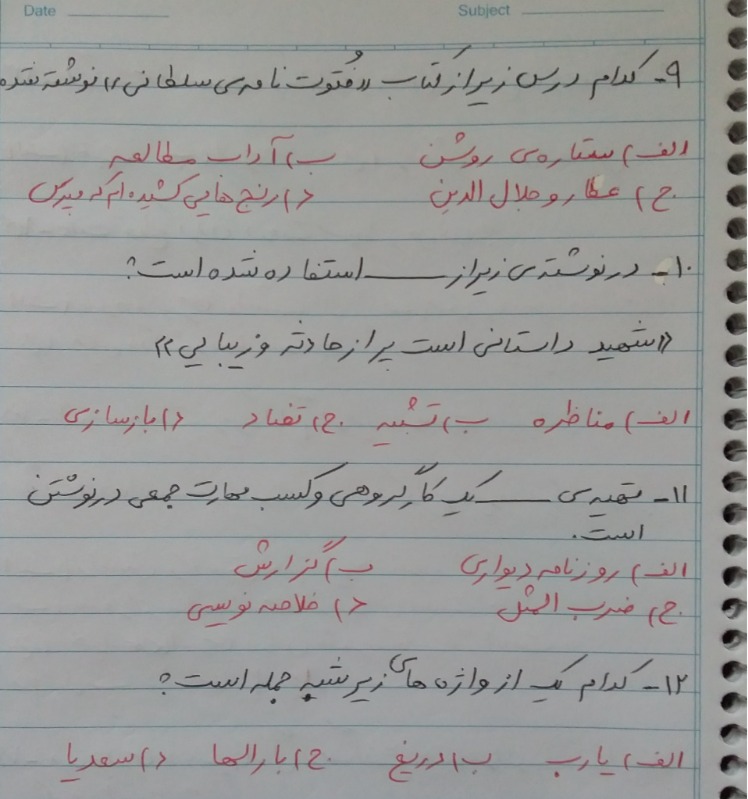 Date Subject
۹- کدام درس زیر از کتاب «فُتوت نامه‌ی سلطانی» نوشته شده
الف) ستاره‌ی روشن ب) آداب مطالعه
ج) عطار و جلال الدین د) رنج هایی کشیده ام که مپرس
۱۰- در نوشته‌ی زیر از ــــــ استفاده شده است؟
«شهید داستانی است پر از حادثه و زیبایی»
الف) مناظره ب) تشبیه ج) تضاد د) بازسازی
۱۱- تهیه‌ی ــــــ یک کار گروهی و کسب مهارت جمعی در نوشتن
است.
الف) روزنامه دیواری ب) گزارش
ج) ضرب المثل د) خلاصه نویسی
۱۲- کدام یک از واژه های زیر شبه جمله است؟
الف) یارب ب) دریغ ج) بارالها د) سعدیا